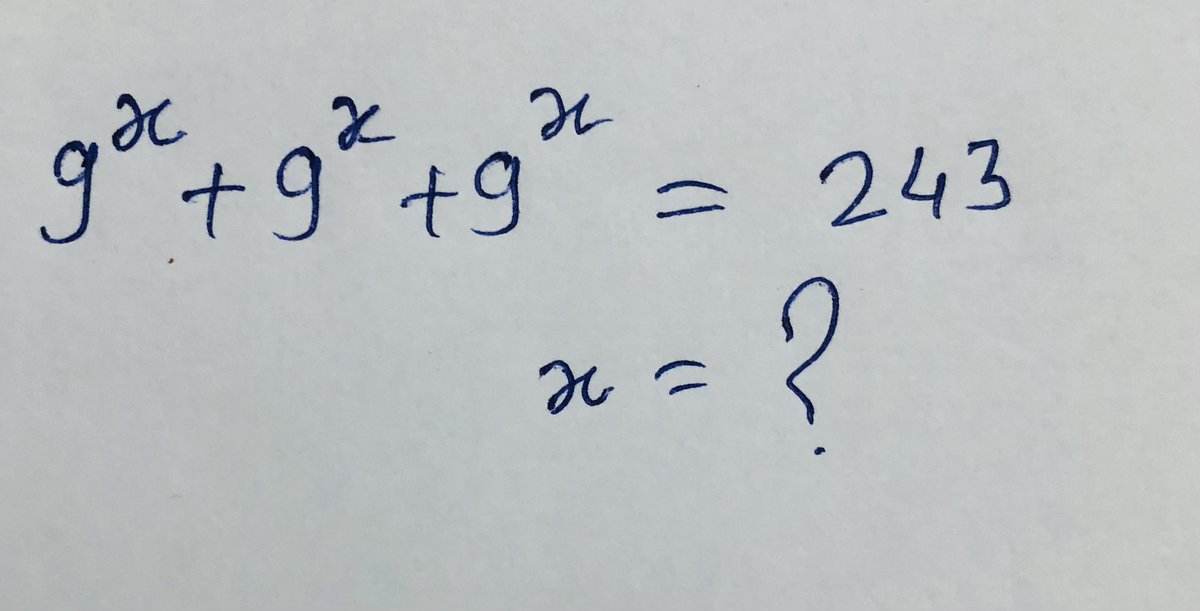 9^x + 9^x + 9^x = 243
x = ?